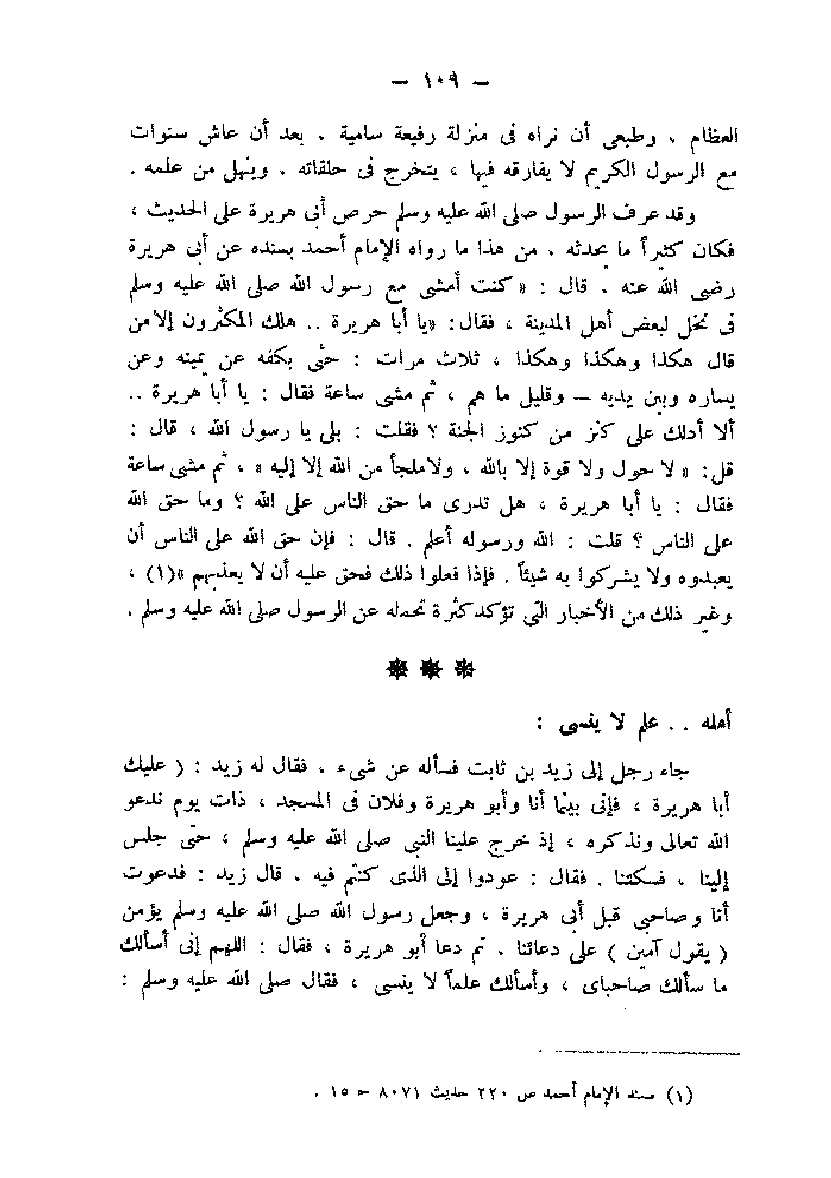 — ١٠٩ —
العظام ، وطبعى أن نراه فى منزلة رفيعة سامية ، بعد أن عاش سنوات
مع الرسول الكريم لا يفارقه فيها ، يتخرج فى حلقاته ، وينهل من علمه .
وقد عرف الرسول صلى الله عليه وسلم حرص أبى هريرة على الحديث ،
فكان كثيراً ما يحدثه ، من هذا ما رواه الإمام أحمد بسنده عن أبى هريرة
رضى الله عنه ، قال : « كنت أمشى مع رسول الله صلى الله عليه وسلم
فى نخل لبعض أهل المدينة ، فقال: «يا أبا هريرة .. هلك المكثرون إلا من
قال هكذا وهكذا وهكذا ، ثلاث مرات : حثى بكفه عن يمينه وعن
يساره وبين يديه — وقليل ما هم ، ثم مشى ساعة فقال : يا أبا هريرة ..
ألا أدلك على كنز من كنوز الجنة ؟ فقلت : بلى يا رسول الله ، قال :
قل: « لا حول ولا قوة إلا بالله ، ولا ملجأ من الله إلا إليه » ، ثم مشى ساعة
فقال : يا أبا هريرة ، هل تدرى ما حق الناس على الله ؟ وما حق الله
على الناس ؟ قلت : الله ورسوله أعلم . قال : فإن حق الله على الناس أن
يعبدوه ولا يشركوا به شيئاً . فإذا فعلوا ذلك فحق عليه أن لا يعذبهم »(١) ،
وغير ذلك من الأخبار التى تؤكد كثرة تحمله عن الرسول صلى الله عليه وسلم .
***
أمله .. علم لا ينسى :
جاء رجل إلى زيد بن ثابت فسأله عن شىء ، فقال له زيد : ( عليك
أبا هريرة ، فإنى بينما أنا وأبو هريرة وفلان فى المسجد ، ذات يوم ندعو
الله تعالى ونذكره ، إذ خرج علينا النبى صلى الله عليه وسلم ، حتى جلس
إلينا ، فسكتنا . فقال : عودوا إلى الذى كنتم فيه . قال زيد : فدعوت
أنا وصاحبى قبل أبى هريرة ، وجعل رسول الله صلى الله عليه وسلم يؤمن
( يقول آمين ) على دعائنا . ثم دعا أبو هريرة ، فقال : اللهم إنى أسألك
ما سألك صاحباى ، وأسألك علماً لا ينسى ، فقال صلى الله عليه وسلم :
(١) مسند الإمام أحمد ص ٢٢٠ حديث ٨٠٧١ ج ١٥ .